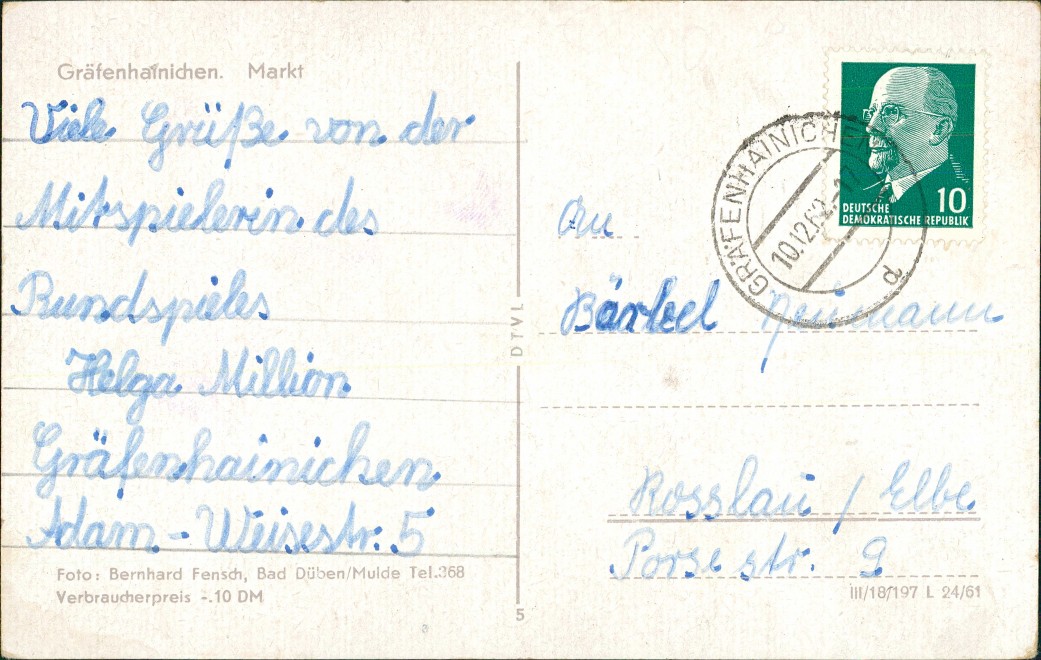 Gräfenhainichen. Markt
Viele Grüße von der
Mitspielerin des
Rundspieles
Helga Million
Gräfenhainichen
Adam-Weisestr. 5
Foto: Bernhard Fensch, Bad Düben/Mulde Tel.368
Verbraucherpreis -.10 DM
DTVL
5
10
DEUTSCHE
DEMOKRATISCHE REPUBLIK
GRÄFENHAINICHEN
10.12.62.-17
d
An
Bärbel Neumann
Rosslau / Elbe
Porsestr. 9
III/18/197 L 24/61